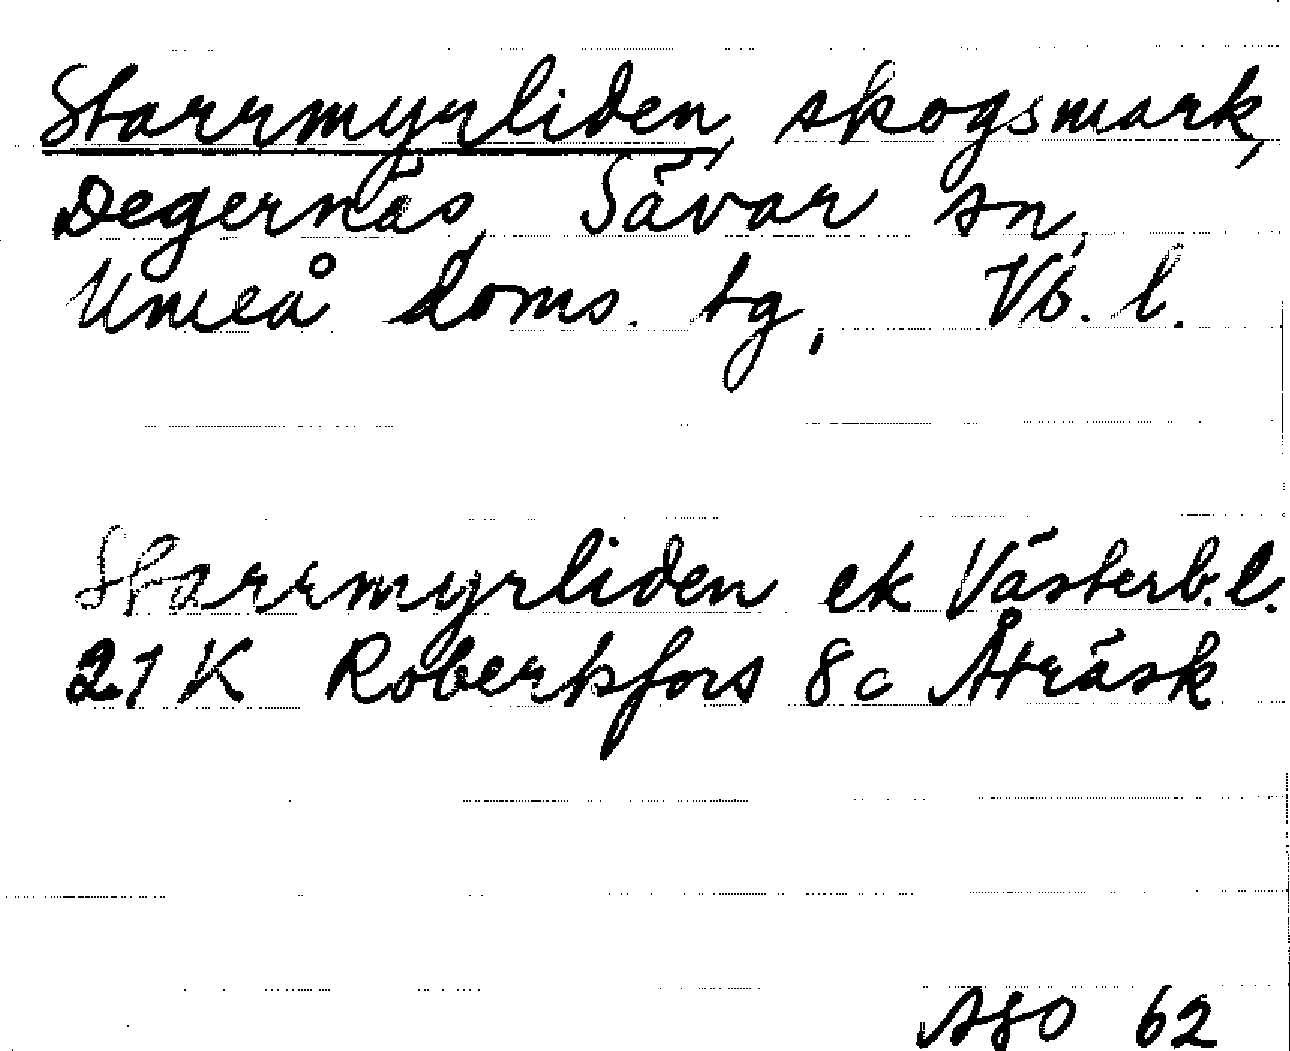 Starrmyrliden, skogsmark,
Degernäs, Sävar sn,
Umeå doms. tg, Vb. l.
Starrmyrliden ek Västerb. l.
21 K Robertsfors 8c Åträsk
62